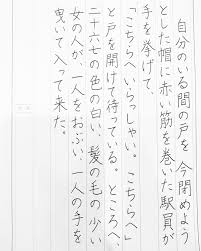 自分のいる間の戸を、今閉めよう
とした帽に赤い筋を巻いた駅員が
手を挙げて、
「こちらへいらっしゃい。こちらへ」
と戸を開けて待っている。ところへ、
二十六七の色の白い、髪の毛の少い
女の人が、一人をおぶい、一人の手を
曳いて入って来た。